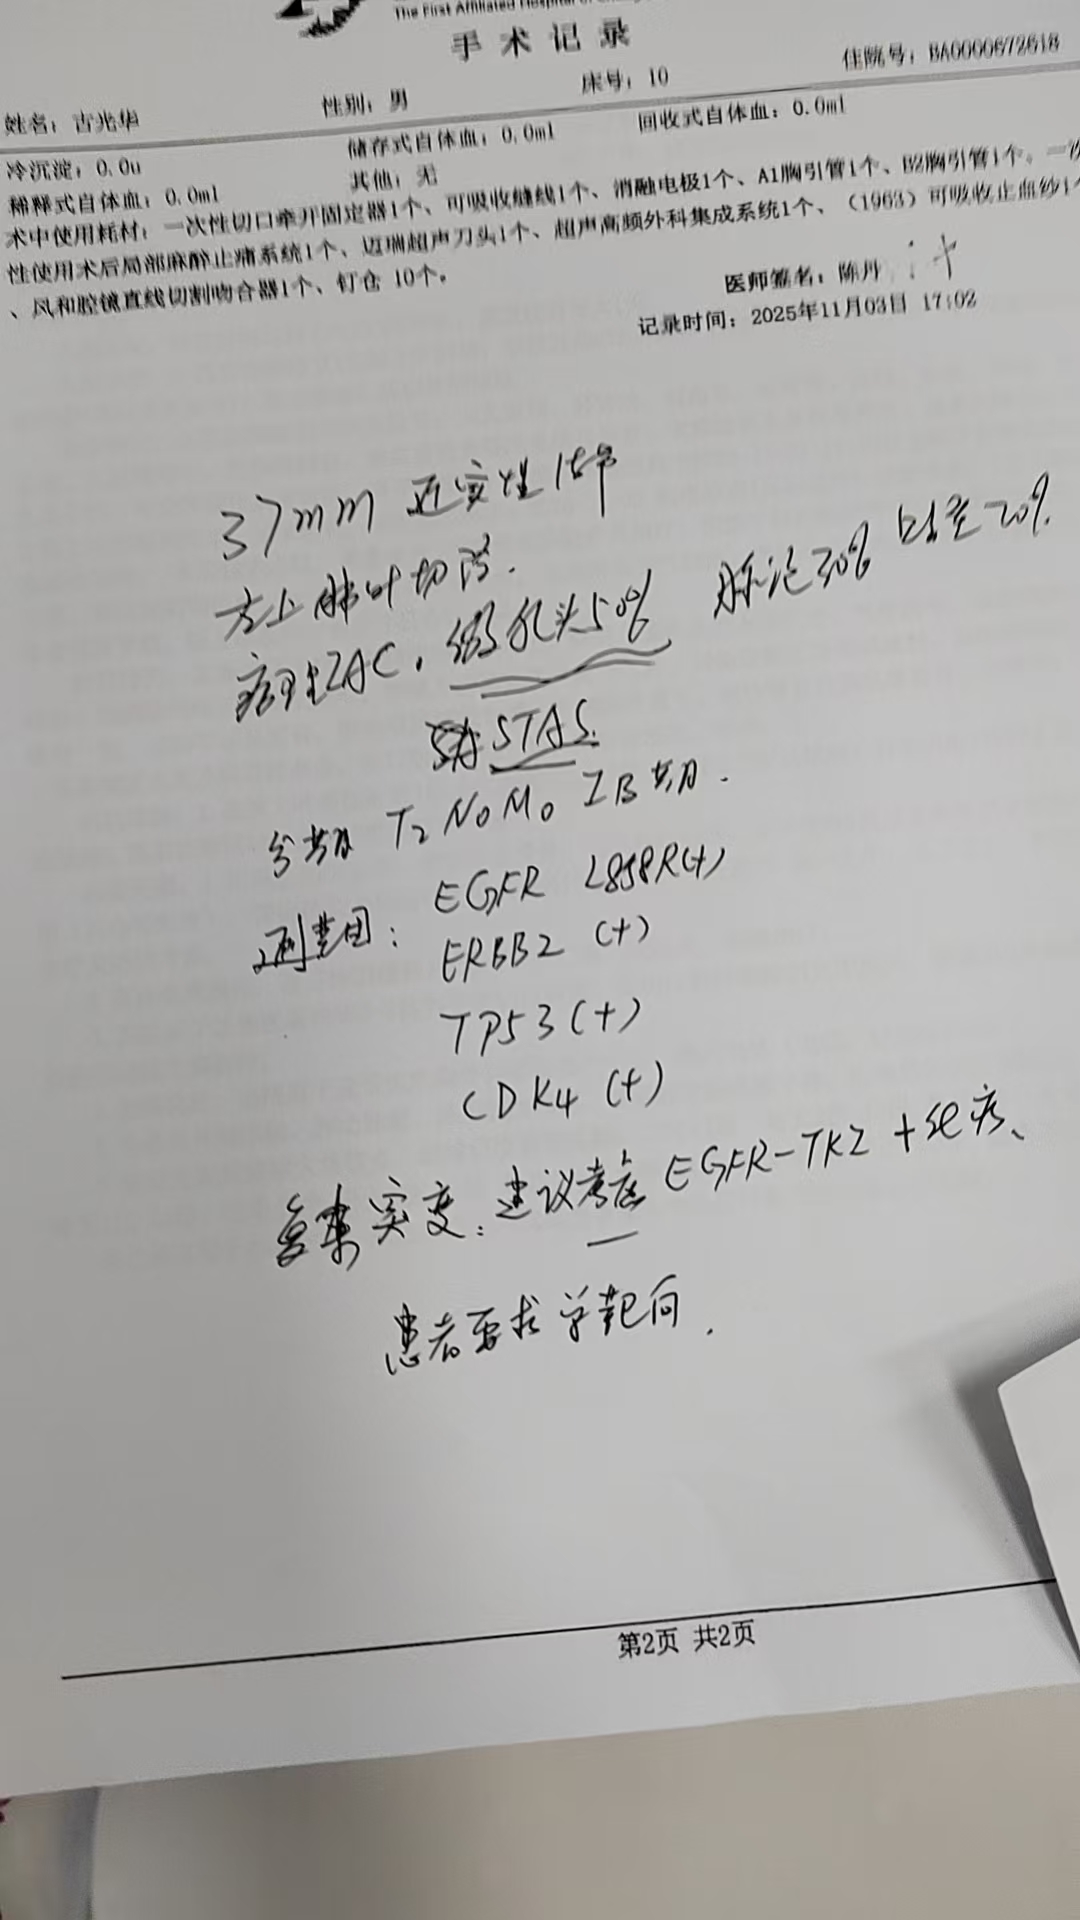 The First Affiliated Hospital of
手术记录
姓名：古光华 性别：男 床号：10 住院号：BA0000672618
冷沉淀：0.0u 储存式自体血：0.0ml 回收式自体血：0.0ml
稀释式自体血：0.0ml 其他：无
术中使用耗材：一次性切口牵开固定器1个、可吸收缝线1个、消融电极1个、A1胸引管1个、B2胸引管1个。一次
性使用术后局部麻醉止痛系统1个、迈瑞超声刀头1个、超声高频外科集成系统1个、（1963）可吸收止血纱1个
、风和腔镜直线切割吻合器1个、钉仓 10个。
医师签名：陈丹
记录时间：2025年11月03日 17:02
37mm 近实性结节
左上肺叶切除.
病理IAC. 微乳头50% 腺泡30% 贴壁20%.
STAS.
分期 T2N0M0 IB期.
测基因: EGFR L858R(+)
ERBB2 (+)
TP53(+)
CDK4 (+)
复杂突变: 建议考虑 EGFR-TKI + 化疗、
患者要求单靶向.
第2页 共2页